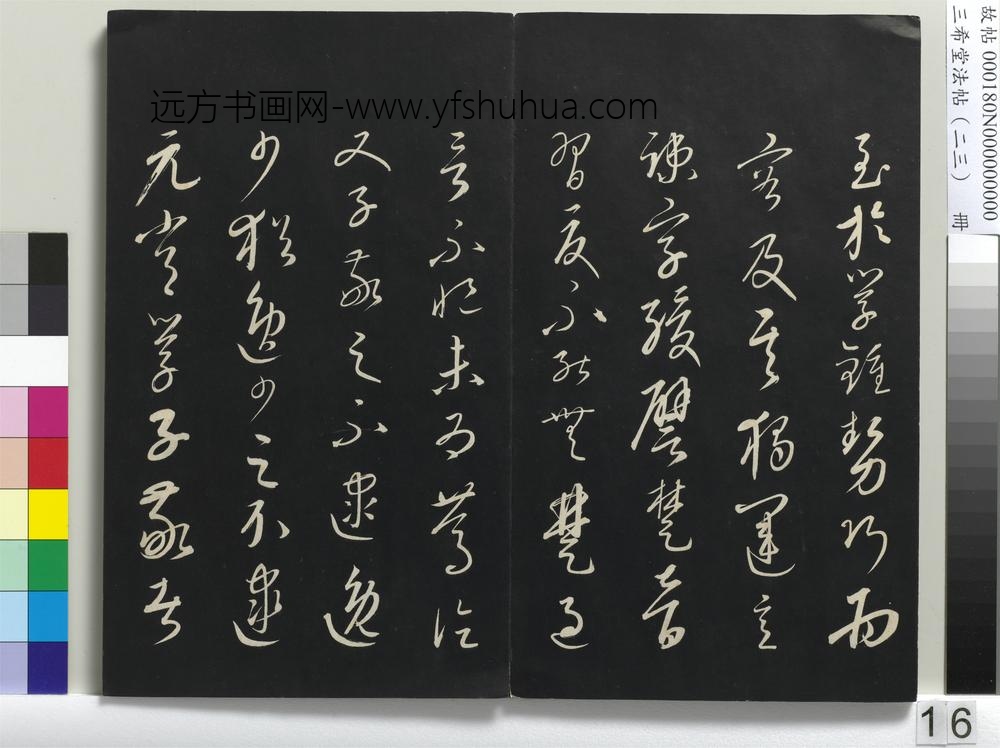 故帖 000180N000000000
三希堂法帖（二三） 冊
远方书画网-www.yfshuhua.com
至於學鍾勢巧而
密及其獨運意
疎字緩譬楚音
習夏不能無楚過
言不悒未為篤論
又子敬之不逮逸
少猶逸少之不逮
元常學子敬者
16